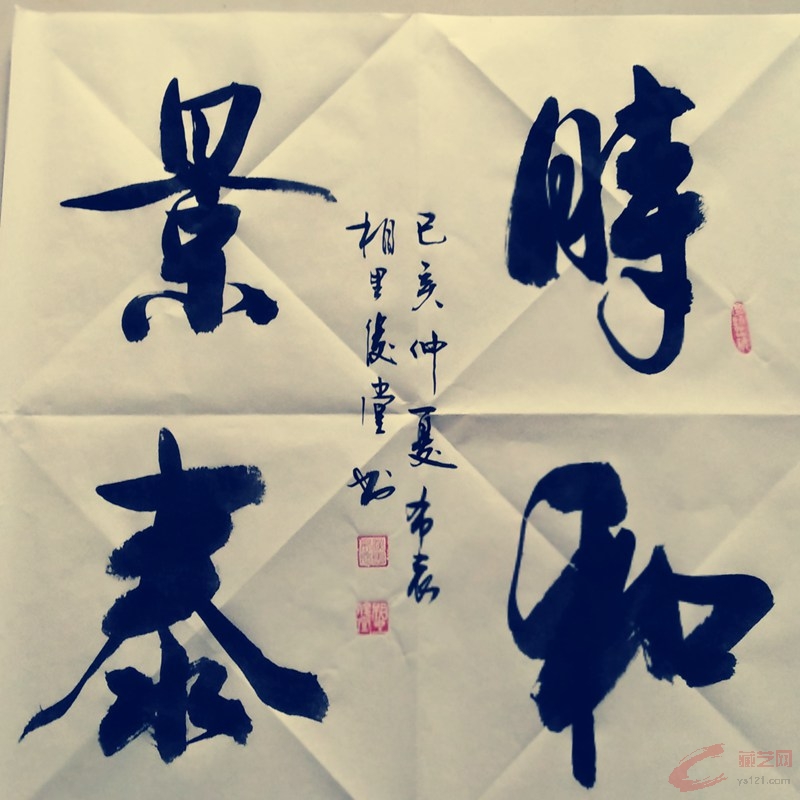 時和
景泰
己亥仲夏布衣
相里俊莹书
藏艺网
ys121.com